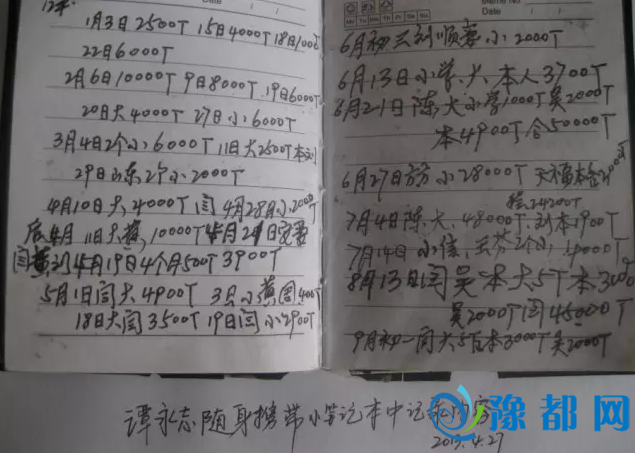 12年
1月3日2500T 15日4000T 18日1000T
22日6000T
2月6日10000T 9日8000T 19日6000T
20日大4000T 27日小6000T
3月4日2个小6000T 11日大2500T本刘
29日山东2个小2000T
4月10日大4000T闫4月28日小2000T
11日大 10000T
19日4个月500T 3900T
5月1日闫大4900T 3日小黄闫400T
18日大闫3500T 19日闫小2900T
Memo No.
Mo Tu We Th Fr Sa Su
Date
6月初三刘顺 小2000T
6月13日小学大本人3700T
6月21日陈大小学1000T吴2000T
本4900T合50000T
6月27日 小28000T
24200T
7月4日陈大48000T刘本1900T
7月14日小信 云芬2个小14000T
8月13日闫吴本大5T本3000
吴2000T闫45000T
9月初一闫大5百本3000T吴2000T
谭永志随身携带小笔记本中记录内容
2015.4.27
豫都网